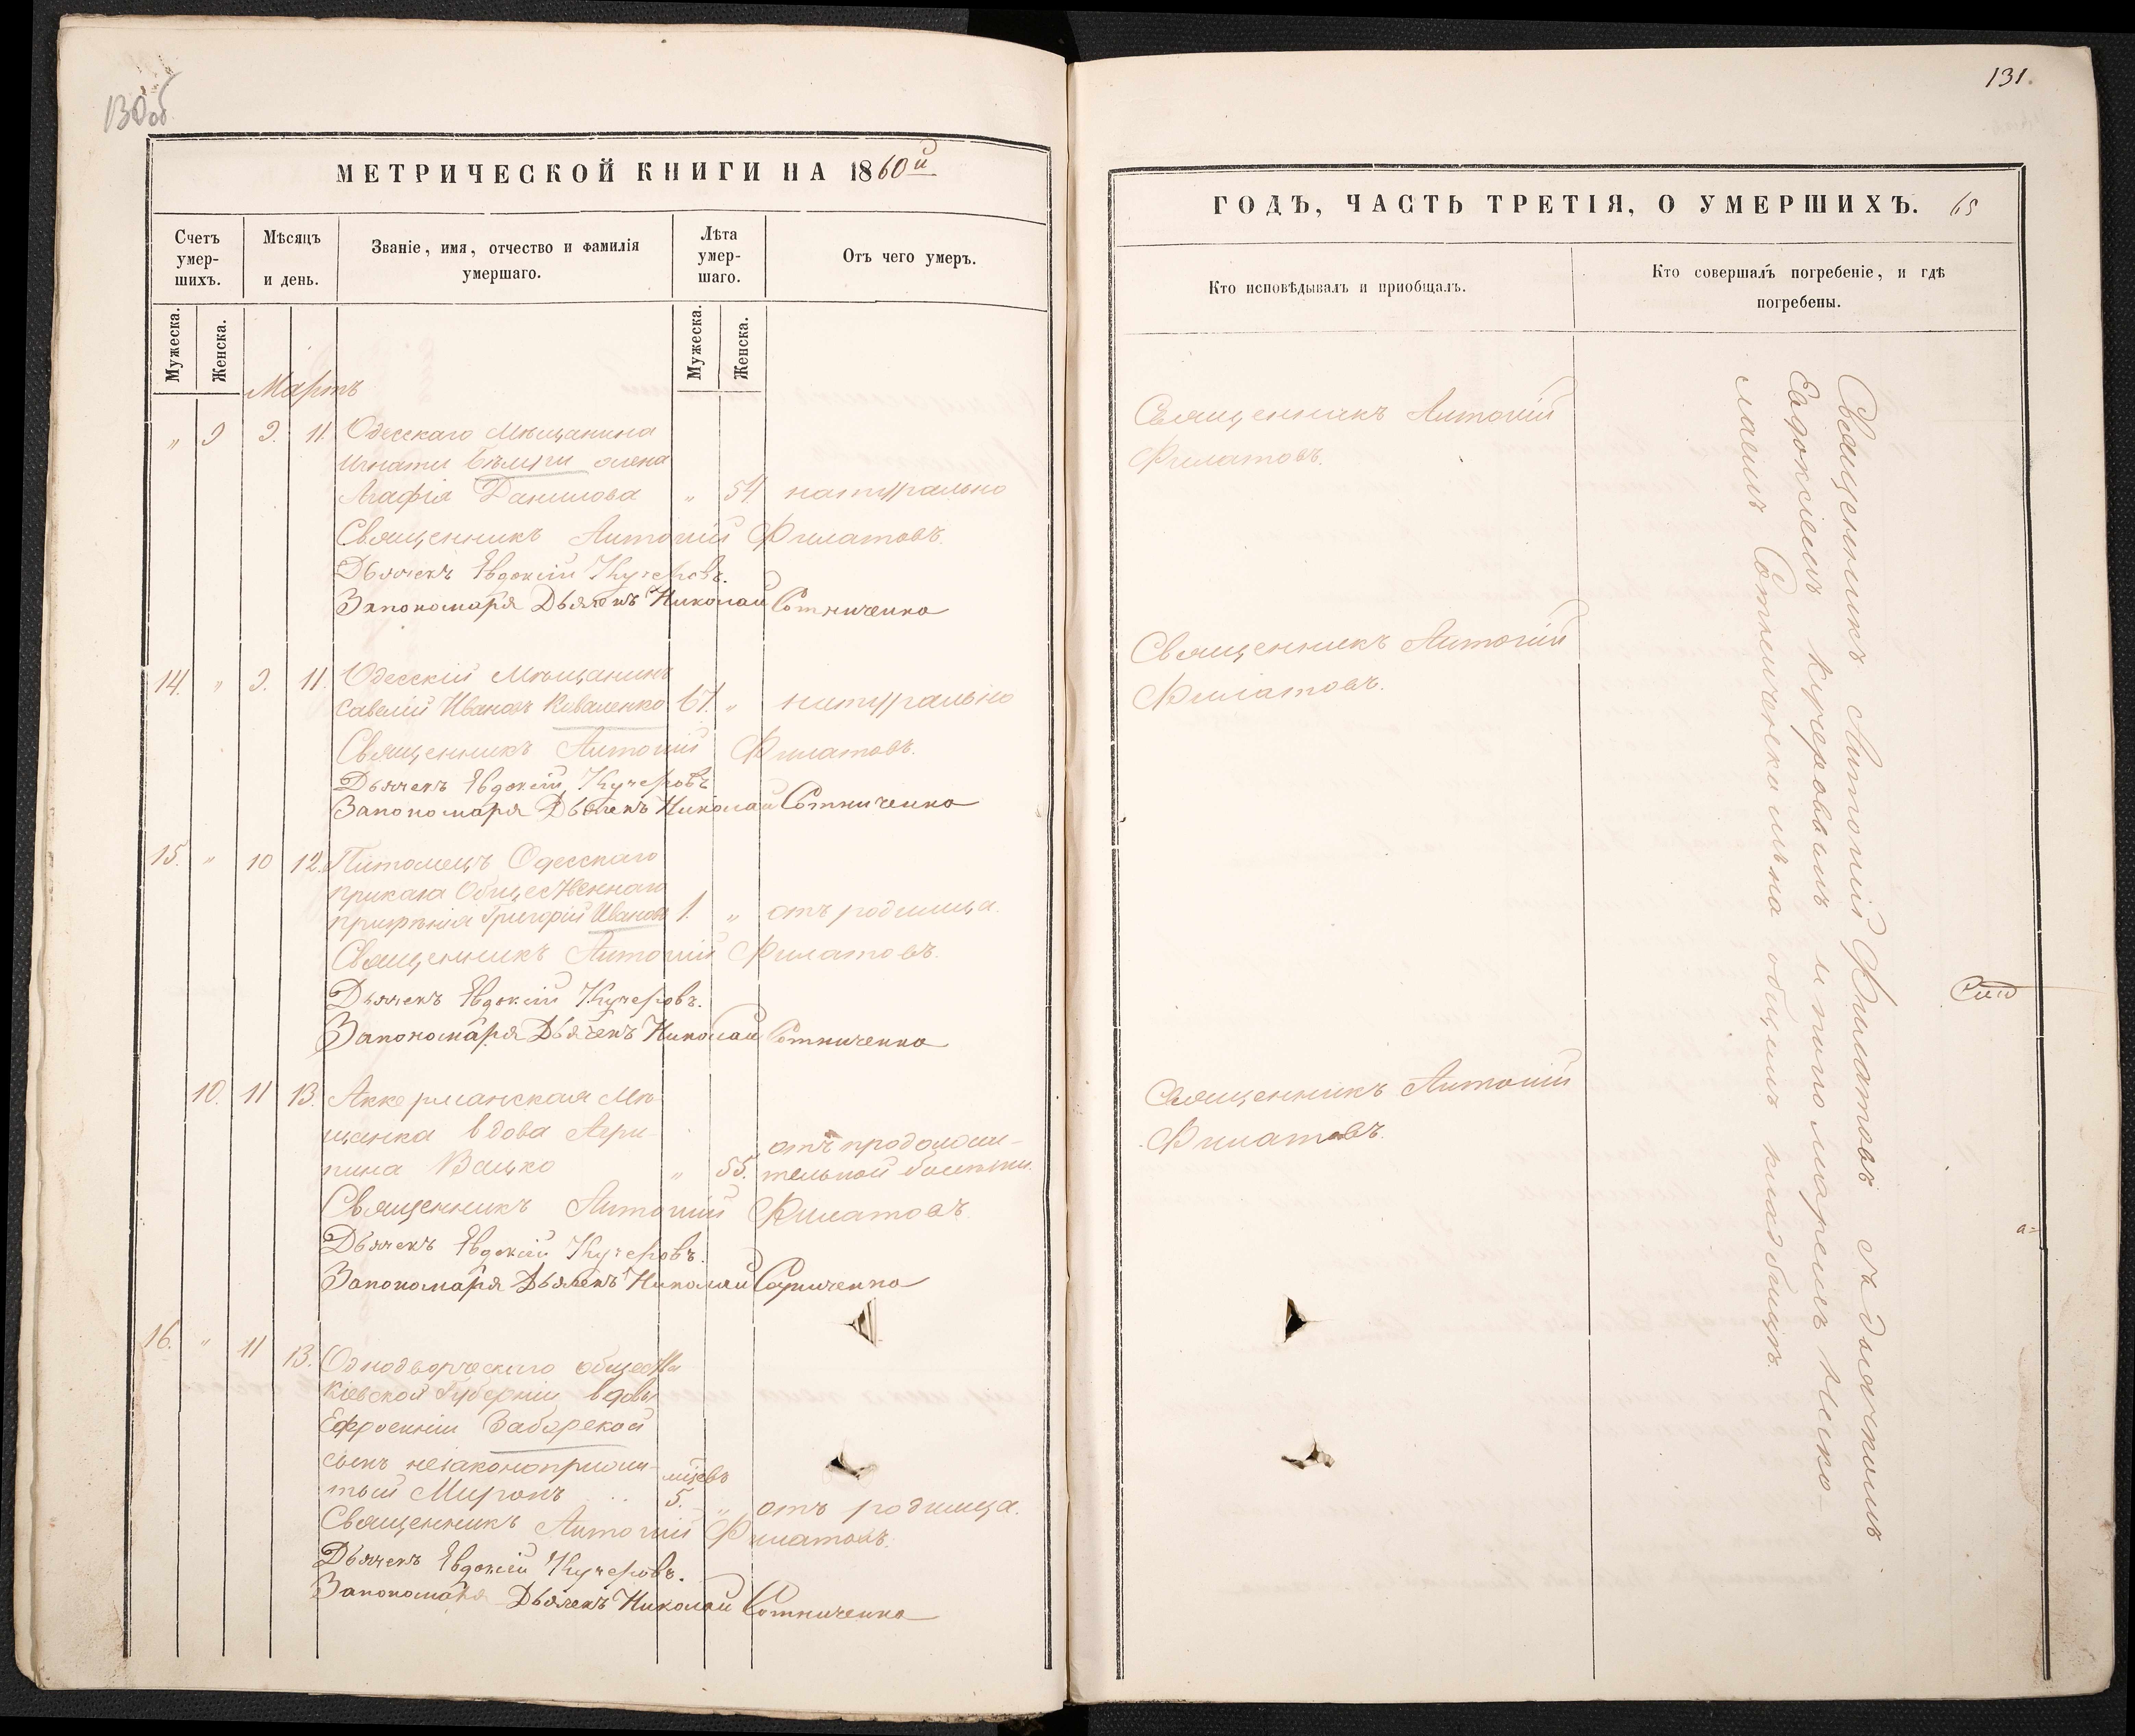 130 об
МЕТРИЧЕСКОЙ КНИГИ НА 1860й
Счетъ умер-шихъ.
Мѣсяцъ и день.
Званіе, имя, отчество и фамилія умершаго.
Лѣта умер-шаго.
Отъ чего умеръ.
Мужеска.
Женска.
Мужеска.
Женска.
Мартъ
" 9 9. 11. Одесскаго Мѣщанина
Игнатія жена
Агафія Данилова " 54 натурально
Священникъ Антоній Филатовъ.
Дьячекъ Евдокій Кучеровъ.
Запономаря Дьячекъ Николай Сотниченко
14. " 9. 11. Одесскій Мѣщанинъ
Савелій Ивановъ Коваленко 67. " натурально
Священникъ Антоній Филатовъ.
Дьячекъ Евдокій Кучеровъ
Запономаря Дьячекъ Николай Сотниченко
15. " 10 12. Питомецъ Одесскаго
приказа Общественнаго
призрѣнія Григорій Ивановъ 1. " отъ родимца.
Священникъ Антоній Филатовъ.
Дьячекъ Евдокій Кучеровъ.
Запономаря Дьячекъ Николай Сотниченко
10. 11 13. Аккерманская Мѣ-
щанка вдова Агри-
пина Вацко " 55. отъ продолжи-
тельной болѣзни.
Священникъ Антоній Филатовъ
Дьячекъ Евдокій Кучеровъ.
Запономаря Дьячекъ Николай Сотниченко
16. " 11 13. Однодворческаго общества
Кіевской Губерніи вдовы
Ефросиніи Заборской
сынъ незаконоприжи-
тый Миронъ мѣсцвъ 5. " отъ родимца.
Священникъ Антоній Филатовъ.
Дьячекъ Евдокій Кучеровъ.
Запономаря Дьячекъ Николай Сотниченко
131.
ГОДЪ, ЧАСТЬ ТРЕТІЯ, О УМЕРШИХЪ. 65
Кто исповѣдывалъ и пріобщалъ.
Кто совершалъ погребеніе, и гдѣ погребены.
Священникъ Антоній
Филатовъ.
Священникъ Антоній
Филатовъ.
Священникъ Антоній
Филатовъ.
Священникъ Антоній Филатовъ съ дьячкомъ
Евдокіемъ Кучеровымъ и пономаремъ Нико-
лаемъ Сотниченкимъ на общемъ кладбищѣ.